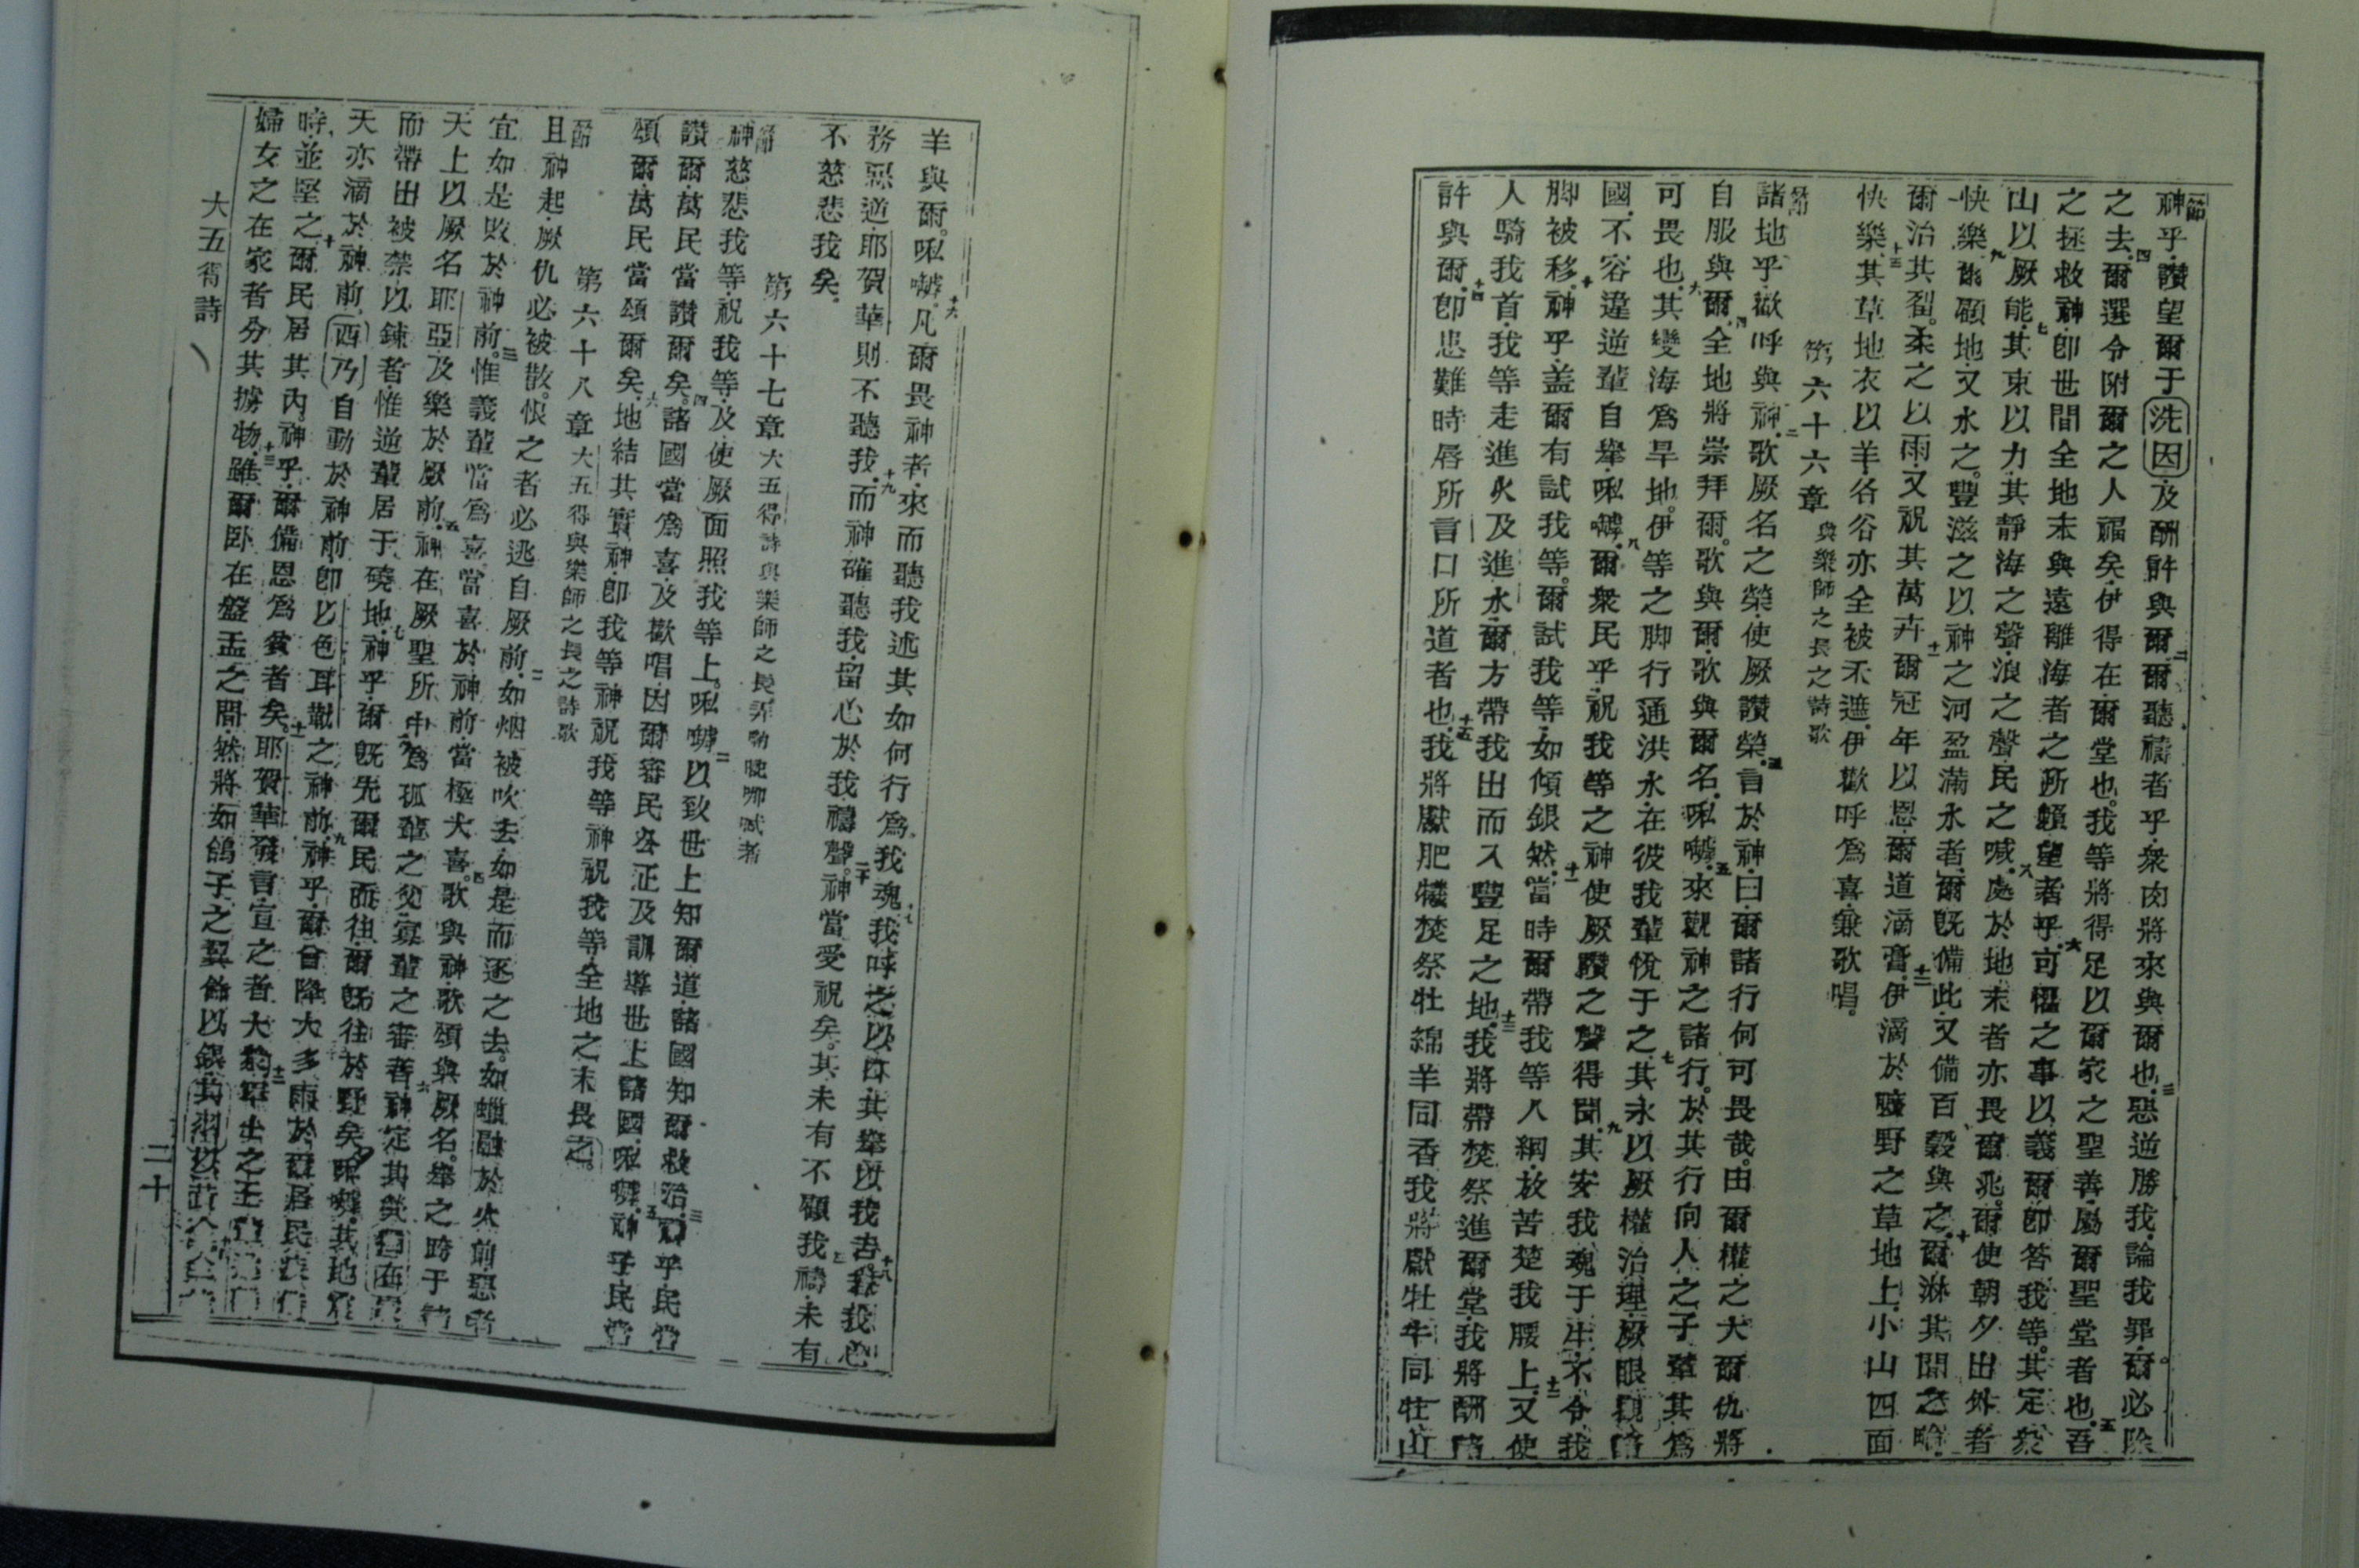 節
神乎讚望爾于洗因及酬許與爾二爾聽禱者乎衆肉將來與爾也三惡逆勝我論我罪爾必除
之去四爾選令附爾之人福矣伊得在爾堂也我等將得足以爾家之聖善屬爾聖堂者也五吾
之拯救神卽世間全地末與遠離海者之所賴望者乎六可懼之事以義爾卽答我等其定衆
山以厥能七其束以力其靜海之聲浪之聲民之喊八處於地末者亦畏爾兆爾使朝夕出外者
快樂九爾顧地又水之豐滋之以神之河盈滿水者爾旣備此又備百穀與之十爾淋其間之
爾治其裂柔之以雨又祝其萬卉十一爾冠年以恩爾道滴膏十二伊滴於曠野之草地上小山四面
快樂十三其草地衣以羊各谷亦全被禾遮伊歡呼爲喜兼歌唱
第六十六章 與樂師之長之詩歌
節
諸地乎歡呼與神二歌厥名之榮使厥讚榮三言於神曰爾諸行何可畏哉由爾權之大爾仇將
自服與爾四全地將崇拜爾歌與爾歌與爾名𠵽嚹五來觀神之諸行於其行向人之子輩其爲
可畏也六其變海爲旱地伊等之脚行通洪水在彼我輩悅于之七其永以厥權治理厥眼觀諸
國不容違逆輩自舉𠵽嚹八爾衆民乎祝我等之神使厥讚之聲得聞九其安我魂于生不令我
脚被移十神乎蓋爾有試我等爾試我等如傾銀然十一當時爾帶我等入網放苦楚我腰上十二又使
人騎我首我等走進火及進水爾方帶我出而入豐足之地十三我將帶焚祭進爾堂我將酬諸
許與爾十四卽患難時唇所言口所道者也十五我將獻肥犧焚祭牡綿羊同香我將獻牡牛同牡山
羊與爾𠵽嚹十六凡爾畏神者來而聽我述其如何行爲我魂十七我呼之以口其舉以我舌十八若我心
務惡逆耶賀華則不聽我十九而神確聽我留心於我禱聲二十神當受祝矣其未有不顧我禱未有
不慈悲我矣
第六十七章 大五得詩與樂師之長
節
神慈悲我等祝我等及使厥面照我等上𠵽嚹二以致世上知爾道諸國知爾救治三神乎民當
讚爾萬民當讚爾矣四諸國當爲喜及歡唱因爾審民公正及訓導世上諸國𠵽嚹五神乎民當
頌爾萬民當頌爾矣六地結其實神卽我等神祝我等神祝我等全地之末畏之
第六十八章 大五得與樂師之長之詩歌
節
且神起厥仇必被散恨之者必逃自厥前二如烟被吹去如是而逐之去如蠟融於火前惡者
宜如是敗於神前三惟義輩當爲喜當喜於神前當極大喜四歌與神歌頌與厥名舉之跨于
天上以厥名耶亞及樂於厥前五神在厥聖所中爲孤輩之父寡輩之審者六神定其
而帶出被禁以鍊者惟逆輩居于磽地七神乎爾旣先爾民而往爾旣往於野矣𠵽嚹八其地
天亦滴於神前西乃自動於神前卽以色耳勒之神前九神乎爾會降大多雨於爾居民
時並堅之十爾民居其內神乎爾備恩爲貧者矣十一耶賀華發言宣之者大十二
婦女之在家者分其擄物十三雖爾臥在盤盂之間然將如鴿子之翼飾以銀
大五得詩
二十